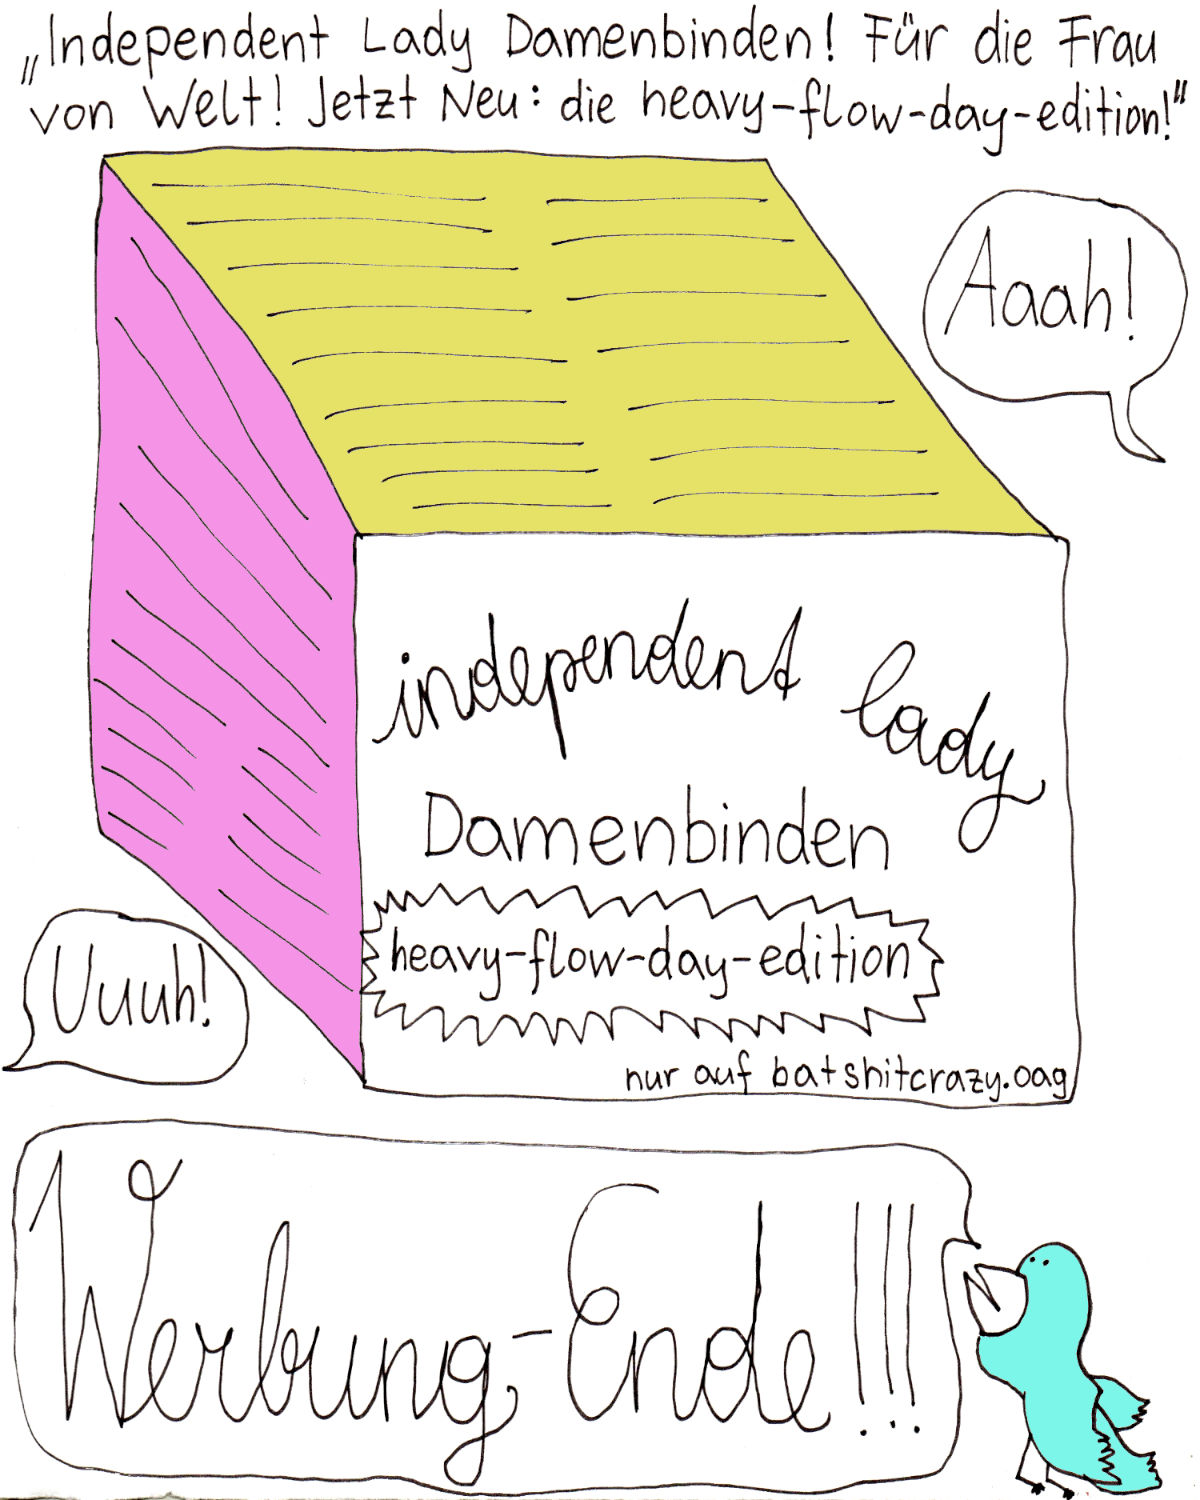 „Independent Lady Damenbinden! Für die Frau
von Welt! Jetzt Neu: die heavy-flow-day-edition!“
Aaah!
independent lady
Damenbinden
heavy-flow-day-edition
nur auf batshitcrazy.oag
Uuuh!
Werbung-Ende!!!